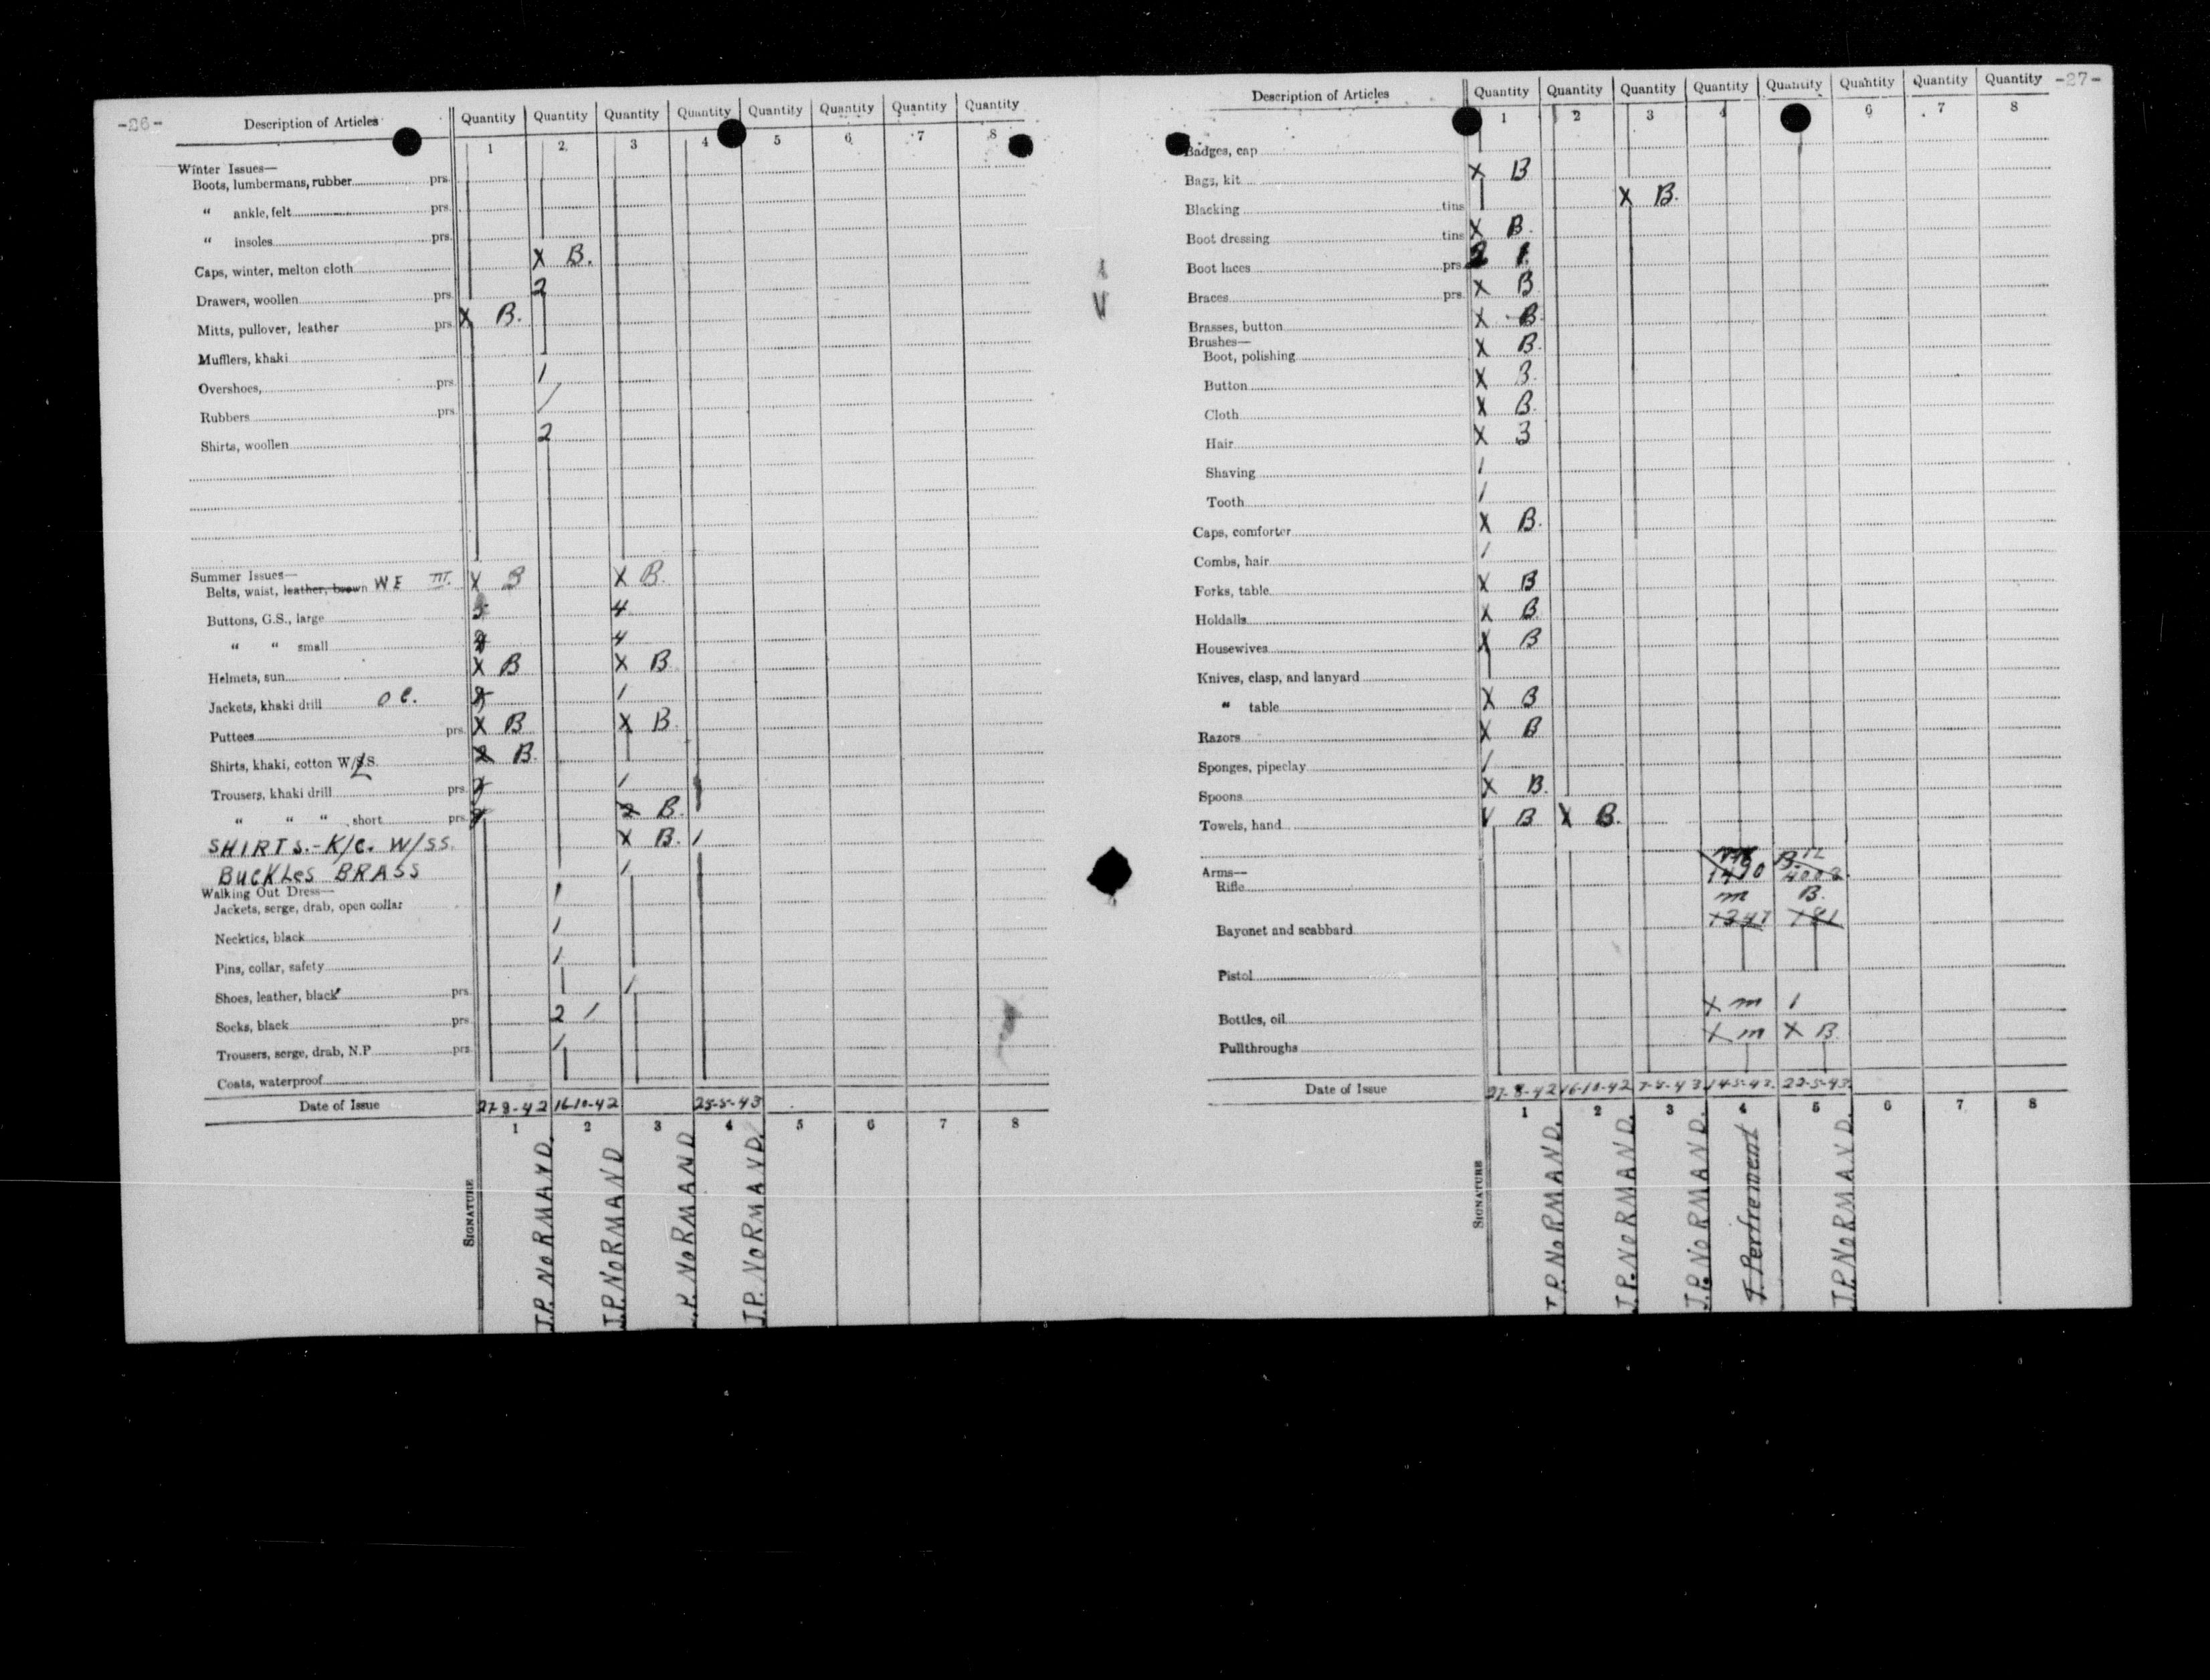 -26-
Description of Articles Quantity Quantity Quantity Quantity Quantity Quantity Quantity Quantity
1 2 3 4 5 6 7 8
Winter Issues—
Boots, lumbermans, rubber prs.
" ankle, felt prs.
" insoles prs.
Caps, winter, melton cloth X B.
Drawers, woollen prs. 2
Mitts, pullover, leather prs. X B.
Mufflers, khaki
Overshoes, prs. 1
Rubbers prs. /
Shirts, woollen 2
Summer Issues—
Belts, waist, leather, brown W E III. X B X B.
Buttons, G.S., large 5 4
" " small 4
Helmets, sun X B X B
Jackets, khaki drill O C. 1
Puttees prs. X B X B.
Shirts, khaki, cotton W/L.S. 2 B.
Trousers, khaki drill prs. 2 1
" " " short prs. 2 B.
SHIRTS.-K/C. W/SS. X B. 1
BUCKLES BRASS 1
Walking Out Dress—
Jackets, serge, drab, open collar 1
Neckties, black 1
Pins, collar, safety 1
Shoes, leather, black prs. 1
Socks, black prs. 2 1
Trousers, serge, drab, N.P. prs. 1
Coats, waterproof
Date of Issue 27-8-42 16-10-42 25-5-43
1 2 3 4 5 6 7 8
SIGNATURE J.P. NORMAND. J.P. NORMAND .P. NORMAND J.P. NORMAND.
-27-
Description of Articles Quantity Quantity Quantity Quantity Quantity Quantity Quantity Quantity
1 2 3 4 6 7 8
Badges, cap
Bags, kit X B
Blacking tins X B.
Boot dressing tins X B.
Boot laces prs. 2 1
Braces prs. X B
Brasses, button X B
Brushes—
Boot, polishing X B.
Button X B.
Cloth X B.
Hair X B
Shaving 1
Tooth 1
Caps, comforter X B.
Combs, hair 1
Forks, table X B
Holdalls X B
Housewives X B
Knives, clasp, and lanyard
" table X B
Razors X B
Sponges, pipeclay 1
Spoons X B.
Towels, hand X B X B.
Arms—
Rifle 1490
m B.
Bayonet and scabbard 1347 181
Pistol
Bottles, oil X m 1
Pullthroughs X m X B.
Date of Issue 27-8-42 16-10-42 7-4-43 14-5-43. 22-5-43.
1 2 3 4 5 6 7 8
SIGNATURE J.P. NORMAND. J.P. NORMAND. J.P. NORMAND. J. Perfrement J.P. NORMAND.